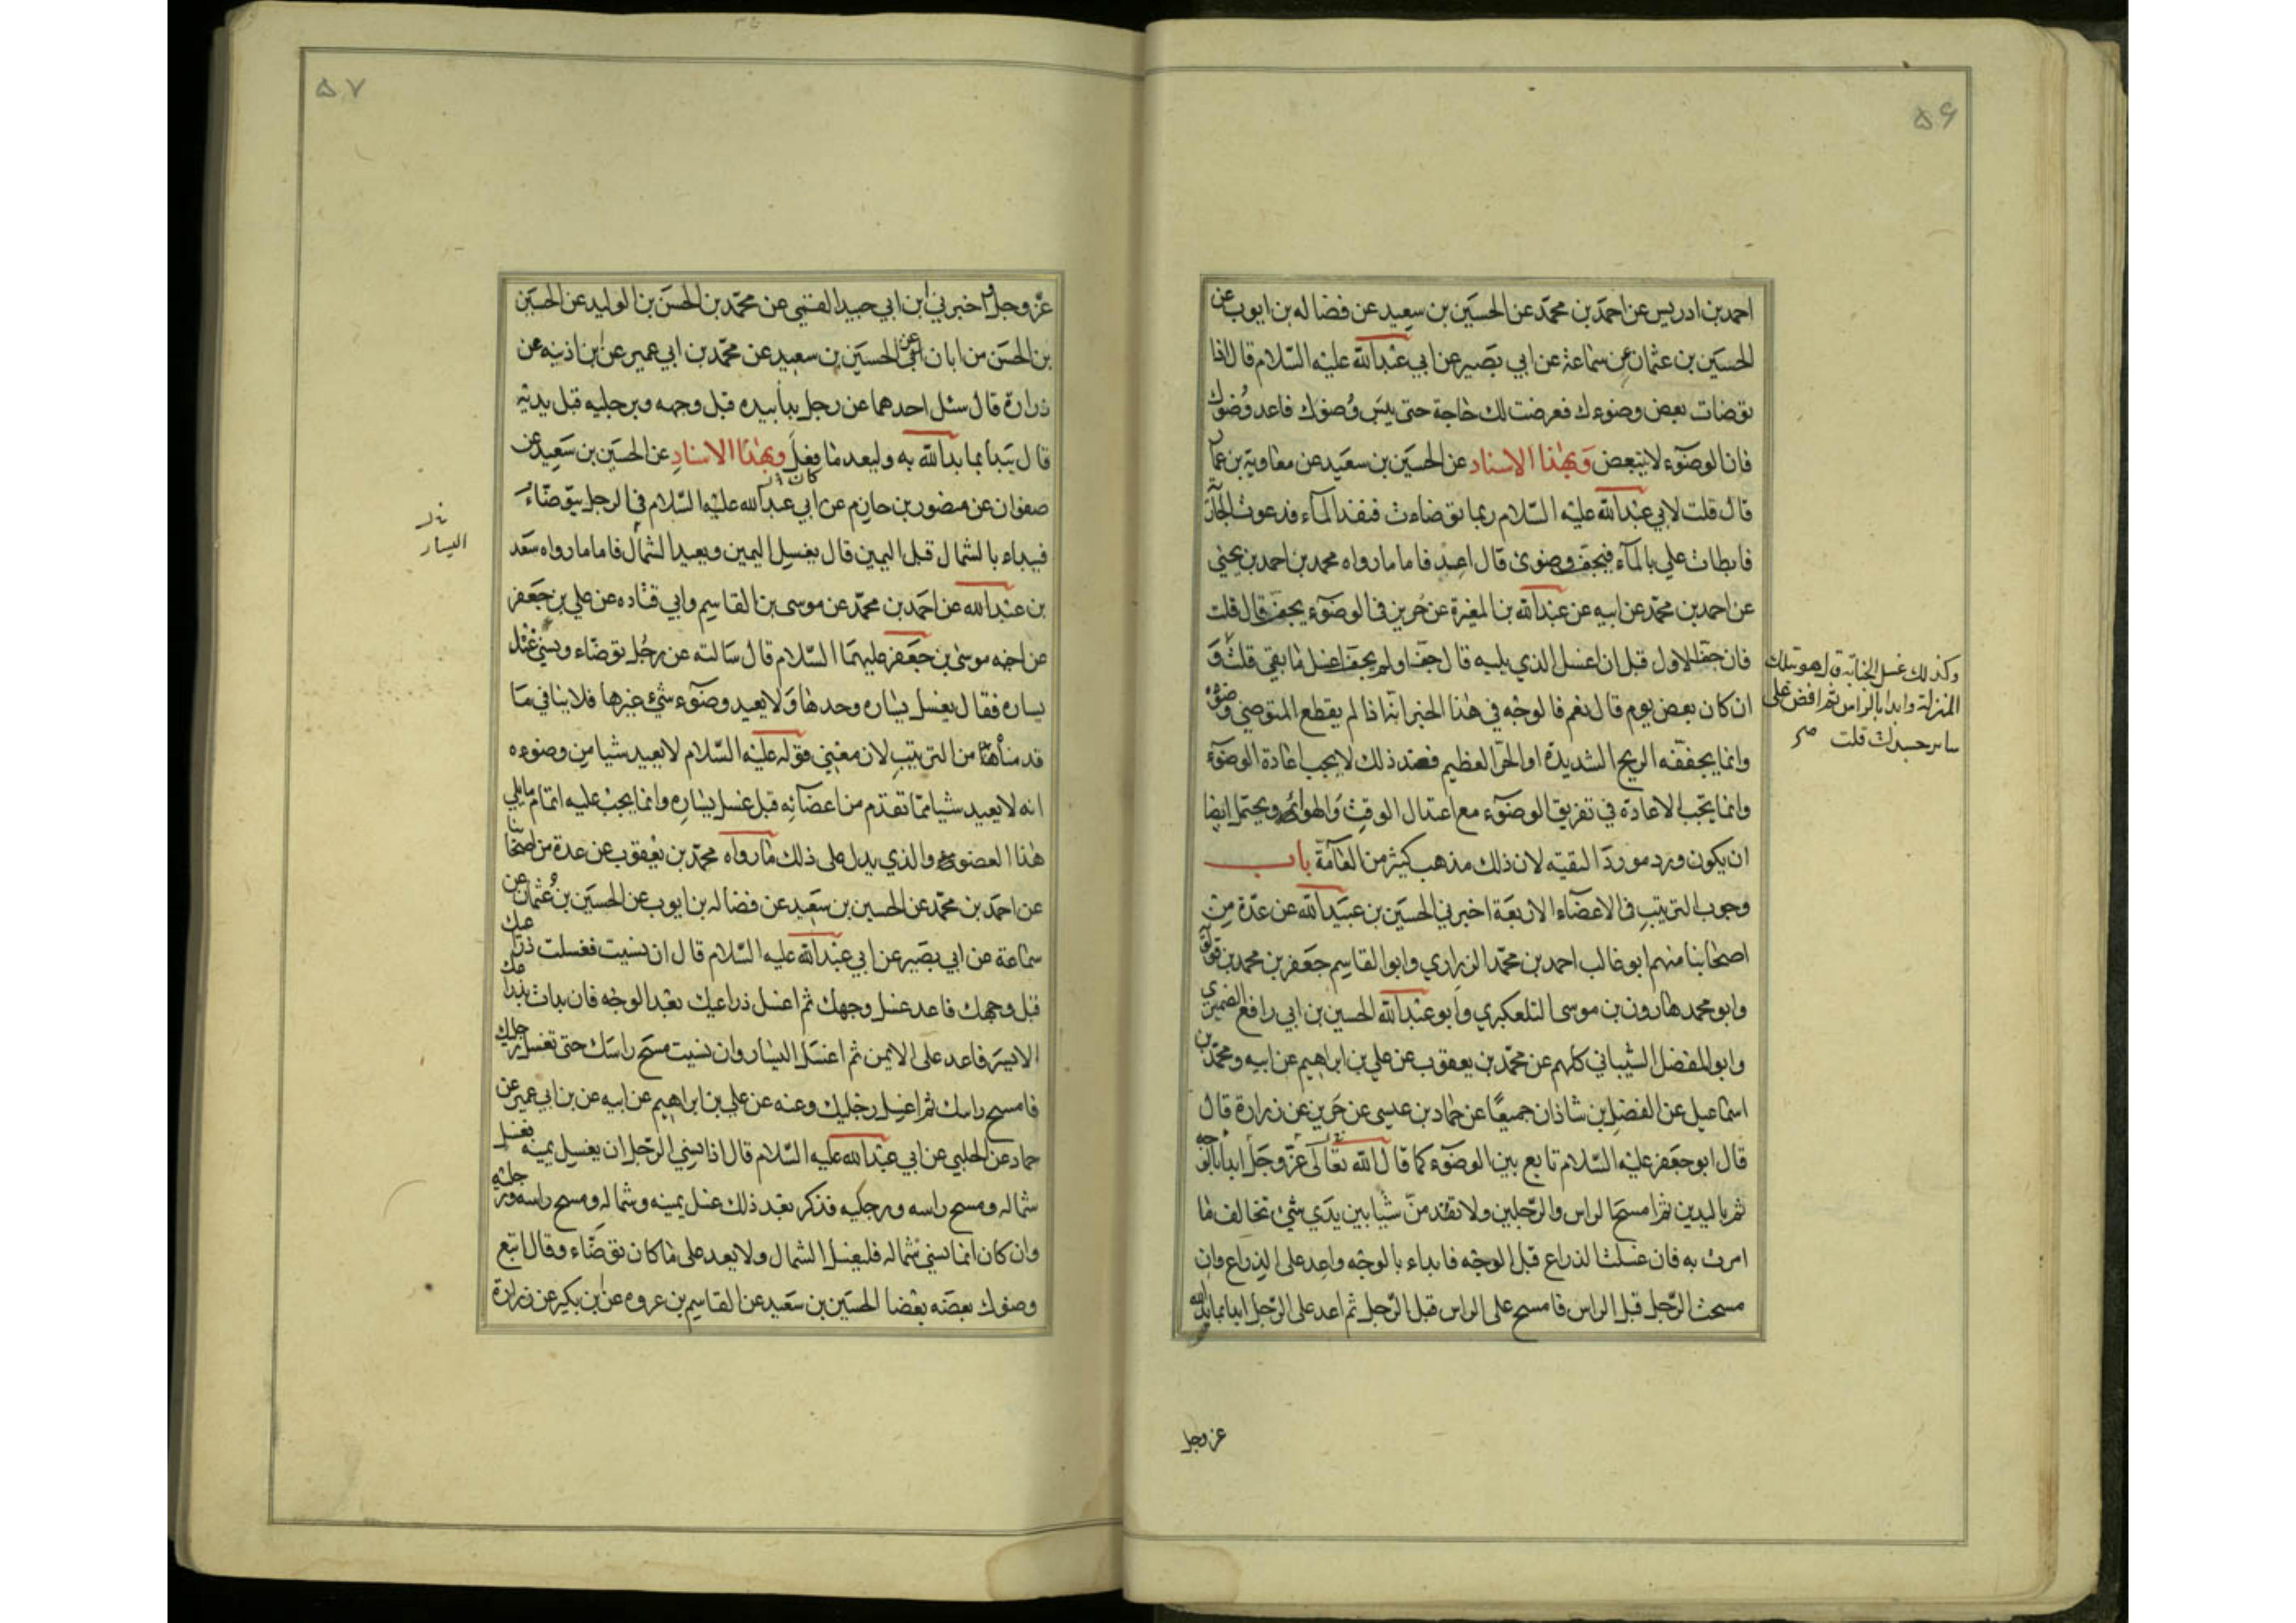 ۵۶
احمد بن ادریس عن احمد بن محمد عن الحسین بن سعید عن فضاله بن ایوب عن
الحسین بن عثمان عن سماعة عن ابی بصیر عن ابی عبدالله علیه السلام قال اذا
توضات بعض وضوءك فعرضت لك حاجة حتی یبس وضوئك فاعد وضوئك
فان الوضوء لا یتبعض وبهذا الاسناد عن الحسین بن سعید عن معاویة بن عمار
قال قلت لابی عبدالله علیه السلام ربما توضاءت فنفد المآء فدعوت الجاریة
فابطات علی بالمآء فیجف وضوئی قال اعد فاما ما رواه محمد بن احمد بن یحیی
عن احمد بن محمد عن ابیه عن عبدالله بن المغیرة عن حریز فی الوضوء یجف قال قلت
فان جف الاول قبل ان اغسل الذی یلیه قال جف او لم یجف اغسل ما بقی قلت و
وكذلك غسل الجنابة قال هو بتلك
المنزلة وابدا بالراس ثم افض علی
سایر جسدك قلت صح
ان کان بعض یوم قال نعم فالوجه فی هذا الخبر انه اذا لم یقطع المتوضی وضوئه
وانما یجففه الریح الشدیدة او الحر العظیم فعند ذلك لا یجب اعادة الوضوء
وانما یجب الاعادة فی تفریق الوضوء مع اعتدال الوقت والهواء ویحتمل ایضا
ان یکون ورد مورد التقیه لان ذلك مذهب کثیر من العامة باب
وجوب الترتیب فی الاعضاء الاربعة اخبرنی الحسین بن عبیدالله عن عدة من
اصحابنا منهم ابو غالب احمد بن محمد الزراری وابو القاسم جعفر بن محمد بن قولویه
وابو محمد هارون بن موسی التلعکبری وابو عبدالله الحسین بن ابی رافع الضمیری
وابو المفضل الشیبانی کلهم عن محمد بن یعقوب عن علی بن ابراهیم عن ابیه ومحمد بن
اسماعیل عن الفضل بن شاذان جمیعا عن حماد بن عیسی عن حریز عن زرارة قال
قال ابو جعفر علیه السلام تابع بین الوضوء کما قال الله تعالی عز وجل ابدا بالوجه
ثم بالیدین ثم امسح الراس والرجلین ولا تقدمن شیا بین یدی شئ تخالف ما
امرت به فان غسلت الذراع قبل الوجه فابداء بالوجه واعد علی الذراع وان
مسحت الرجل قبل الراس فامسح علی الراس قبل الرجل ثم اعد علی الرجل ابدا بما بدا الله
عز وجل
۵۷
عز وجل واخبرنی ابن ابی جید القمی عن محمد بن الحسن بن الولید عن الحسین
بن الحسن بن ابان عن الحسین بن سعید عن محمد بن ابی عمیر عن ابن اذینه عن
زرارة قال سئل احدهما عن رجل بدا بیده قبل وجهه وبرجلیه قبل یدیه
قال یبدا بما بدا الله به ولیعد ما فعل وبهذا الاسناد عن الحسین بن سعید عن
صفوان عن منصور بن حازم عن ابی عبدالله علیه السلام فی الرجل یتوضاء
فیبداء بالشمال قبل الیمین قال یغسل الیمین ویعید الشمال فاما ما رواه سعد
الیسار
بن عبدالله عن احمد بن محمد عن موسی بن القاسم وابی قتاده عن علی بن جعفر
عن اخیه موسی بن جعفر علیهما السلام قال سالته عن رجل توضاء ونسی غسل
یساره فقال یغسل یساره وحدها ولا یعید وضوء شئ غیرها فلا ینافی ما
قدمناه من الترتیب لان معنی قوله علیه السلام لا یعید شیا من وضوءه
انه لا یعید شیا مما تقدم من اعضائه قبل غسل یساره وانما یجب علیه اتمام ما یلی
هذا العضو والذی یدل علی ذلك ما رواه محمد بن یعقوب عن عدة من اصحابنا
عن احمد بن محمد عن الحسین بن سعید عن فضاله بن ایوب عن الحسین بن عثمان عن
سماعة عن ابی بصیر عن ابی عبدالله علیه السلام قال ان نسیت فغسلت ذراعك
قبل وجهك فاعد غسل وجهك ثم اغسل ذراعیك بعد الوجه فان بدات بذراعك
الایسر فاعد علی الایمن ثم اغسل الیسار وان نسیت مسح راسك حتی تغسل رجلیك
فامسح راسك ثم اغسل رجلیك وعنه عن علی بن ابراهیم عن ابیه عن بن ابی عمیر عن
حماد عن الحلبی عن ابی عبدالله علیه السلام قال اذا نسی الرجل ان یغسل یمینه فغسل
شماله ومسح راسه ورجلیه فذکر بعد ذلك غسل یمینه وشماله ومسح راسه ورجلیه
وان کان انما نسی شماله فلیغسل الشمال ولا یعد علی ما کان توضاء وقال اتبع
وضوئك بعضه بعضا الحسین بن سعید عن القاسم بن عروه عن ابن بکیر عن زرارة